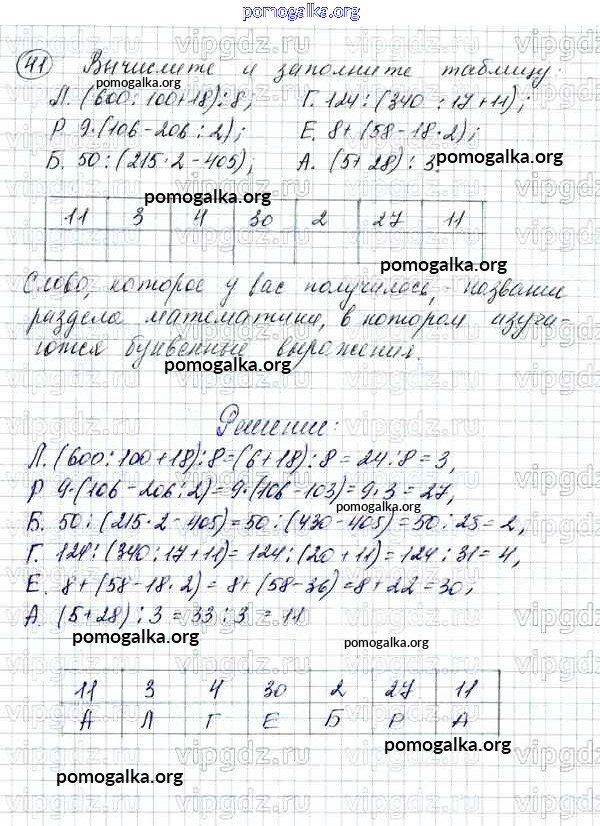 pomogalka.org
41 Вычислите и заполните таблицу:
pomogalka.org
Л. (600 : 100 + 18) : 8; Г. 124 : (340 : 17 + 11);
Р. 9·(106 - 206 : 2); Е. 8 + (58 - 18·2);
Б. 50 : (215·2 - 405); А. (5 + 28) : 3.
pomogalka.org
pomogalka.org
11 3 4 30 2 27 11
pomogalka.org
Слово, которое у вас получилось, - название
раздела математики, в котором изуча-
ются буквенные выражения.
pomogalka.org
Решение:
Л. (600 : 100 + 18) : 8 = (6 + 18) : 8 = 24 : 8 = 3,
Р 9·(106 - 206 : 2) = 9·(106 - 103) = 9·3 = 27,
Б. 50 : (215·2 - 405) = 50 : (430 - 405) = 50 : 25 = 2,
Г. 124 : (340 : 17 + 11) = 124 : (20 + 11) = 124 : 31 = 4,
Е. 8 + (58 - 18·2) = 8 + (58 - 36) = 8 + 22 = 30;
А. (5 + 28) : 3 = 33 : 3 = 11
pomogalka.org pomogalka.org
11 3 4 30 2 27 11
А Л Г Е Б Р А
pomogalka.org
pomogalka.org